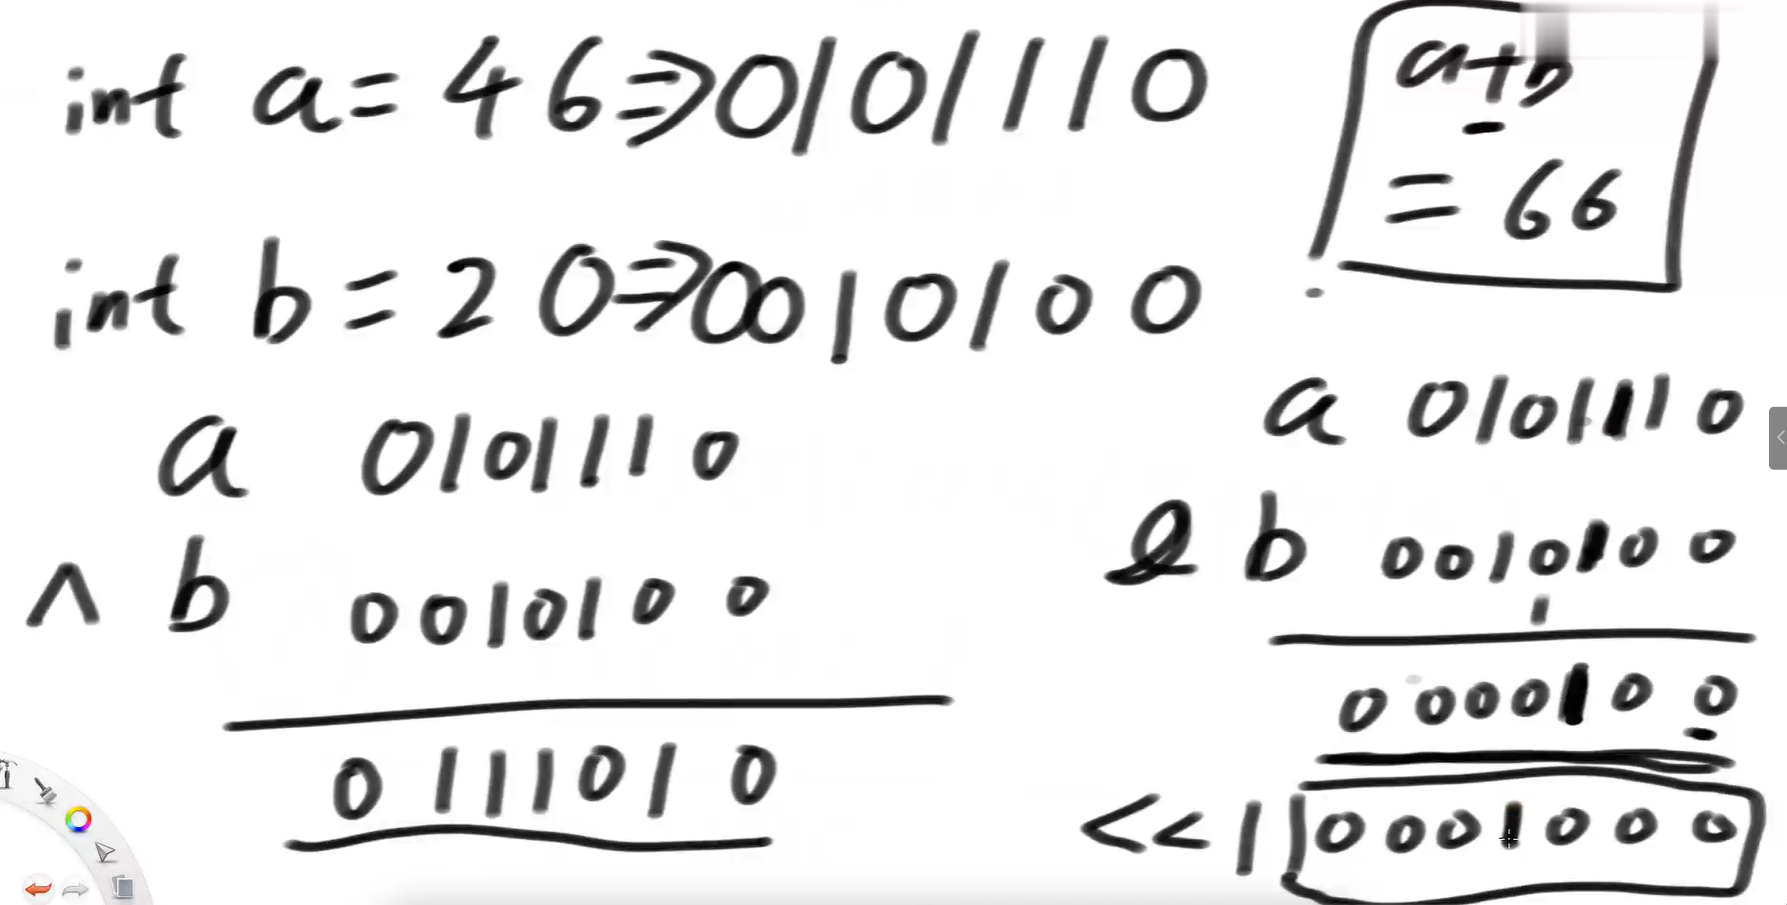 int a = 46 ⇒ 0101110
a+b
= 66
int b = 20 ⇒ 0010100
a 0101110
^ b 0010100
0111010
a 0101110
& b 0010100
0000100
<<1 0001000